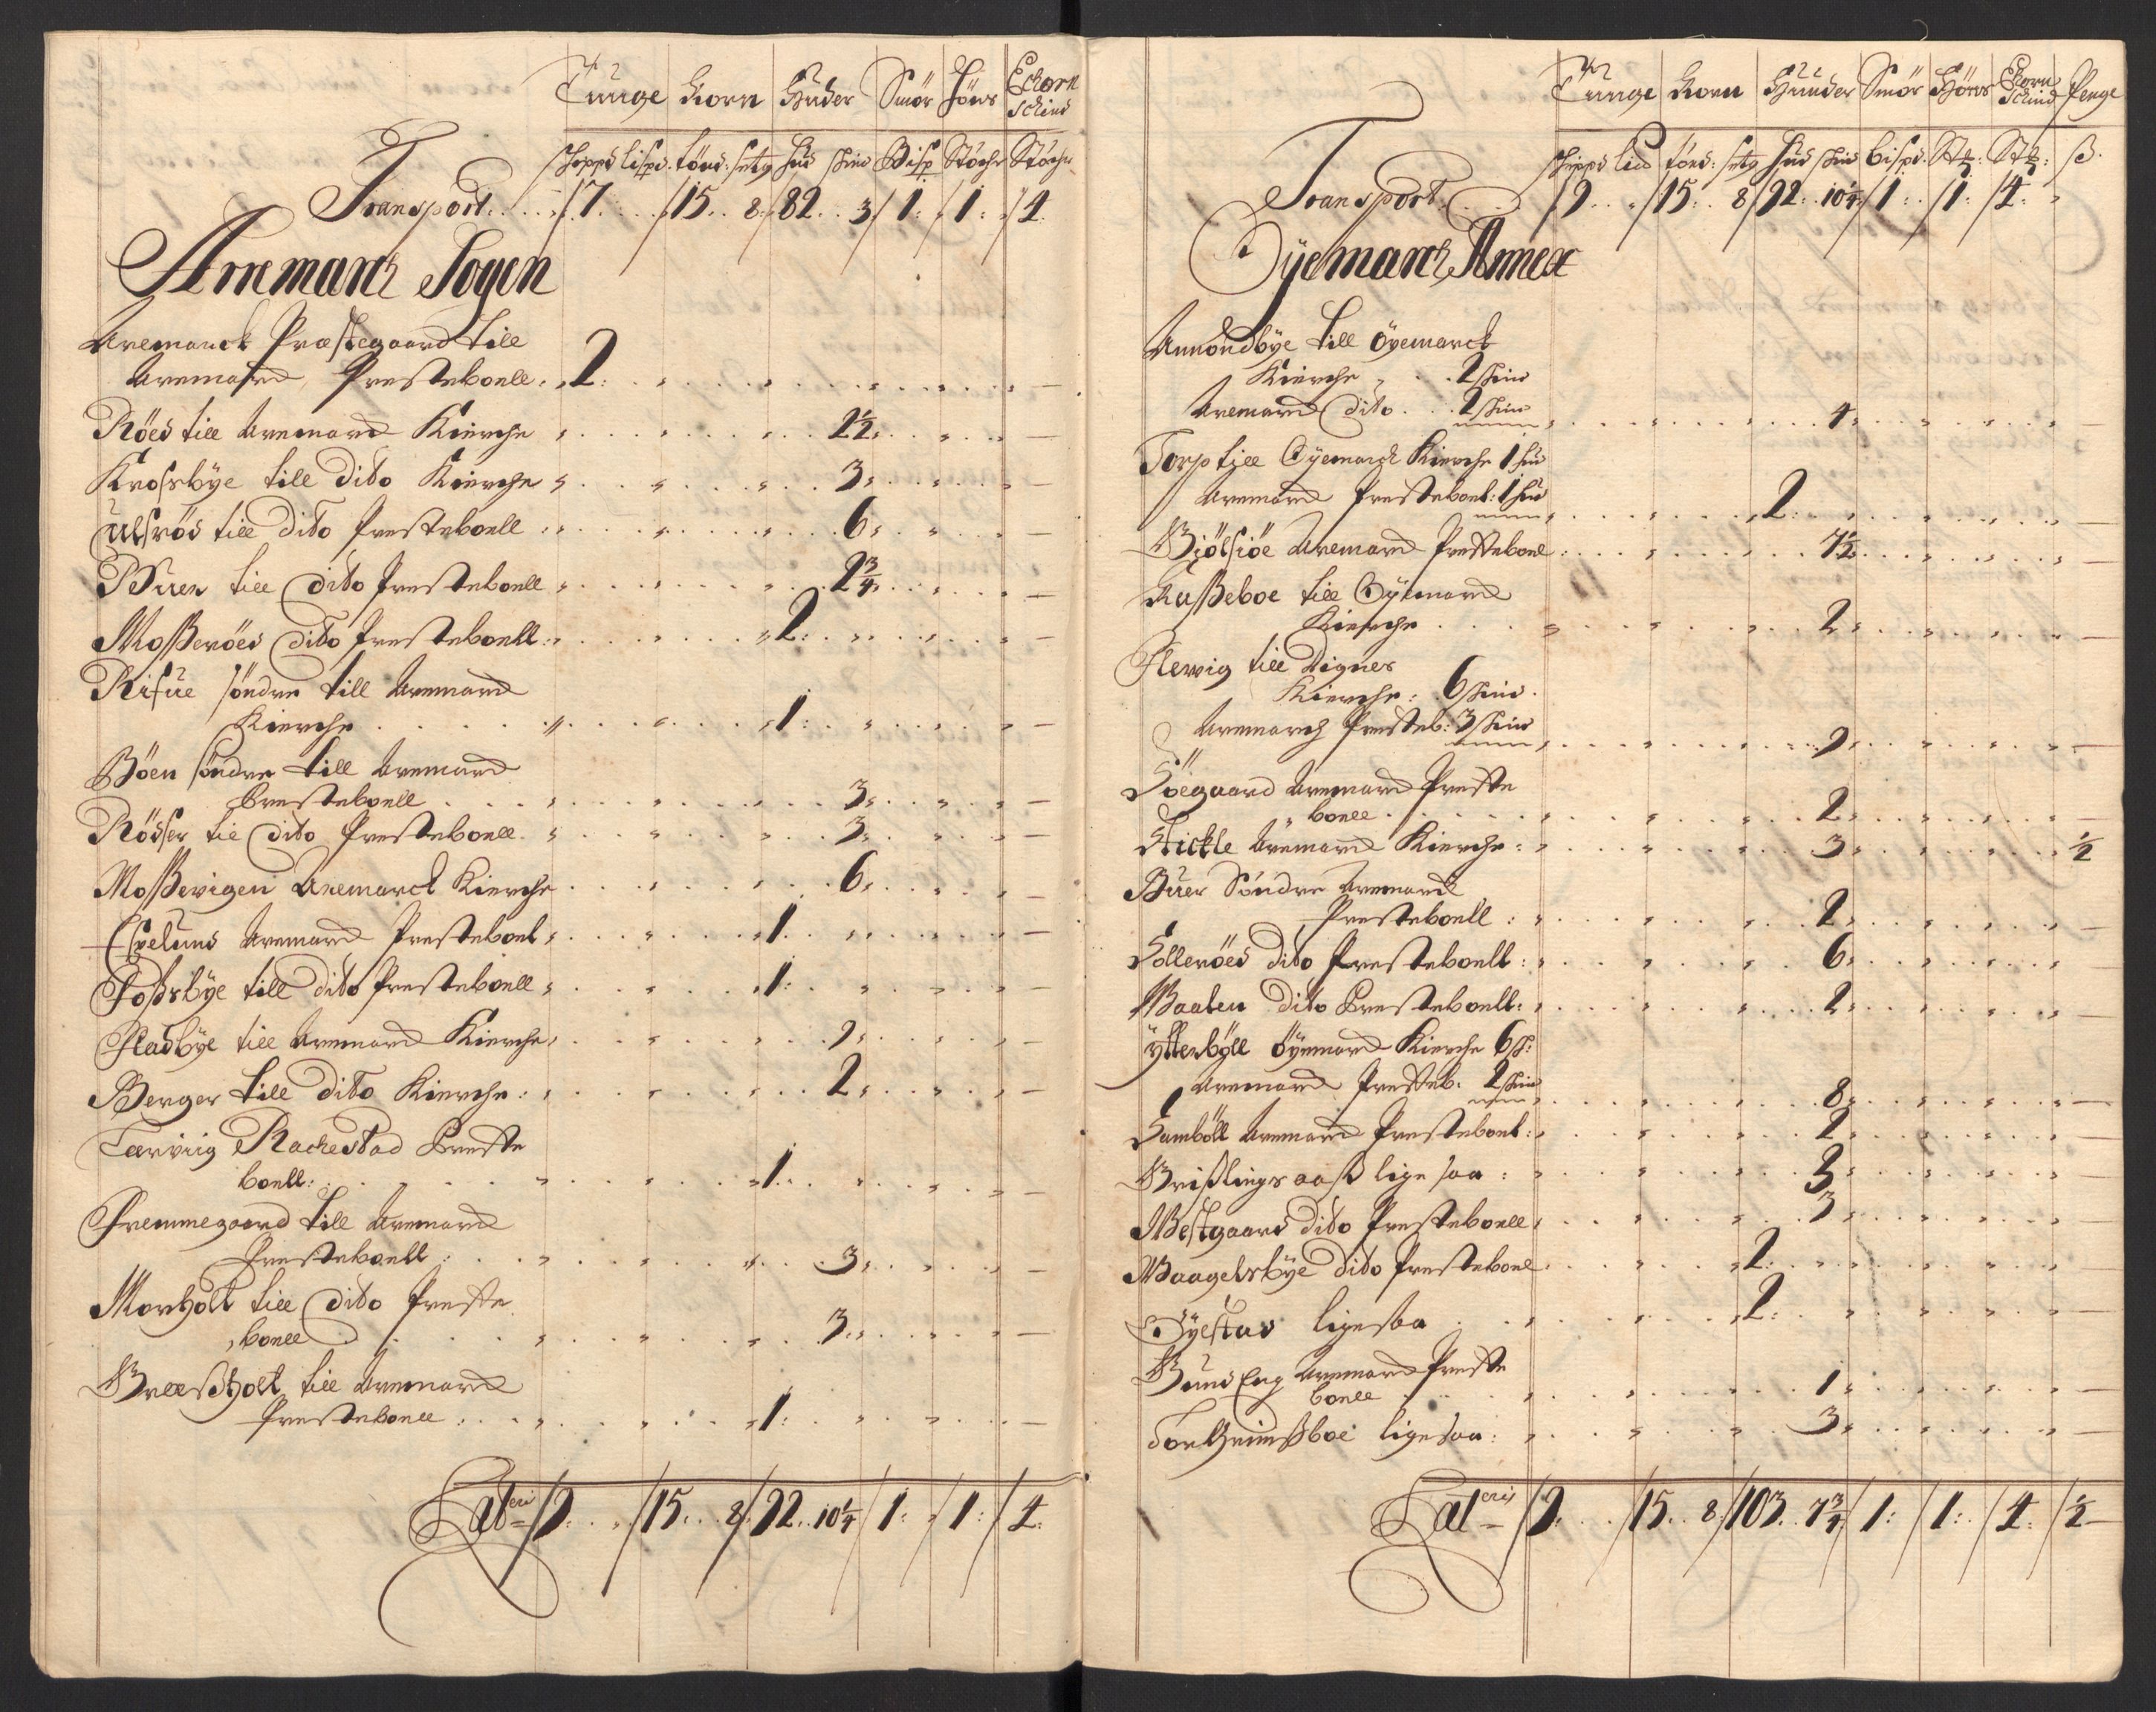 Tunge Korn Huder Smör Höns Echorn
Schind
Schippd lispd. tönd: setg hud skind Bisp Stöche Stöche
Transport. 7. 15. 8. 82. 3 1. 1. 4
Aremarck Sogen
Aremarck Præstegaard till
Aremarck Præsteboell. 2.
Röed till Aremarck Kierche 2½
Krossbye till dito Kierche 3.
Ulsröd till dito Presteboell 6.
Buer till dito Presteboell 2¾
Mosseröed dito Presteboell 2.
Risue söndre till Aremarck
Kierche 1.
Böen söndre till Aremarck
Presteboell 3.
Rödser till dito Presteboell 3.
Mossevigen Aremarck Kierche 6.
Espelund Aremarck Presteboel 1.
Fossbye till dito Presteboell 1.
Fladbye till Aremarck Kierche 9.
Berger till dito Kierche 2.
Tervig Rachestad Preste
boell: 1.
Fremmegaard till Aremarck
Presteboell 3.
Morholt till dito Preste
boell 3.
Greessholt till Aremarck
Presteboell 1.
Lateris 9. 15. 8. 92. 10¼ 1. 1. 4.
Tunge Korn Huuder Smör Höns Echorn
Schind Penge
Schippd lisp tönd: setg hud skind bispd. Stk: Stk: ß.
Transport. 9. 15. 8 92. 10¼ 1. 1. 4.
Öyemarck Annex
Ammondbye till Öyemarck
Kierche 2 skind
Aremarck dito 2 skind 4
Torp till Öyemarck Kierche 1 hud
Aremarck Presteboel: 1 hud 2.
Bjölsiöe Aremarck Presteboel 7½
Kasseboe till Öyemarck
Kierche 2.
Flewig till Digner
Kierche: 6 skind.
Aremarch Presteb: 3 skind 9
Söegaard Aremarck Preste
boell 2.
Stickle Aremarck Kierche: 3 ½
Buer Söndre Aremarck
Presteboell: 2.
Sölleröed dito Presteboell: 6.
Waalen dito Presteboell: 2.
Ytterböll Öyemarck Kierche 6 sk:
Aremarck Presteb. 2 skind 8.
Samböll Aremarck Presteboel: 2.
Brißlingsaaß lige saa: 3.
Westgaard dito Presteboell 3
Waagelsbye dito Presteboel 2.
Öyestad ligesaa 2.
Bund Eng Aremarck Preste
boell 1.
Torgrimßboe ligesaa: 3.
Lateris 9. 15. 8 103. 7¾ 1. 1. 4. ½